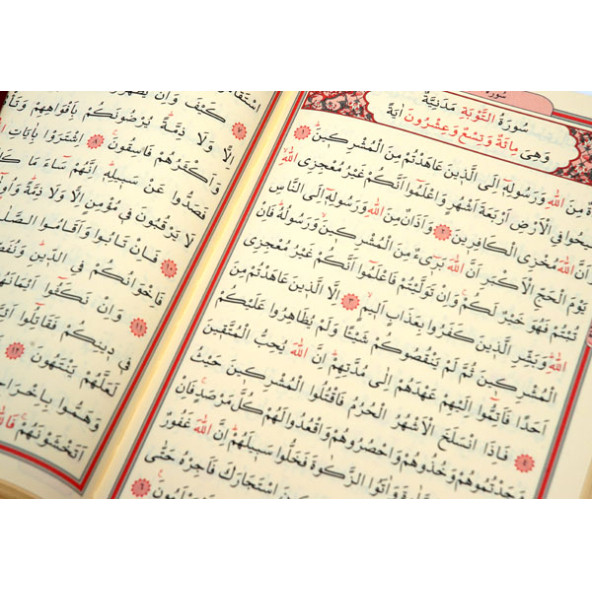 سُورَةُ
سُورَةُ التَّوْبَةِ مَدَنِيَّةٌ
وَهِيَ مِائَةٌ وَتِسْعٌ وَعِشْرُونَ اٰيَةً
ةٌ مِنَ اللّٰهِ وَرَسُولِهٖٓ اِلَى الَّذِينَ عَاهَدْتُمْ مِنَ الْمُشْرِكِينَۜ ١
يحُوا فِي الْاَرْضِ اَرْبَعَةَ اَشْهُرٍ وَاعْلَمُٓوا اَنَّكُمْ غَيْرُ مُعْجِزِي اللّٰهِۙ
اَنَّ اللّٰهَ مُخْزِي الْكَافِرِينَ ٢ وَاَذَانٌ مِنَ اللّٰهِ وَرَسُولِهٖٓ اِلَى النَّاسِ
يَوْمَ الْحَجِّ الْاَكْبَرِ اَنَّ اللّٰهَ بَرِٓيءٌ مِنَ الْمُشْرِكِينَ وَرَسُولُهُۜ فَاِنْ
تُبْتُمْ فَهُوَ خَيْرٌ لَكُمْۚ وَاِنْ تَوَلَّيْتُمْ فَاعْلَمُٓوا اَنَّكُمْ غَيْرُ مُعْجِزِي
اللّٰهِۜ وَبَشِّرِ الَّذِينَ كَفَرُوا بِعَذَابٍ اَلِيمٍۙ ٣ اِلَّا الَّذِينَ عَاهَدْتُمْ مِنَ
الْمُشْرِكِينَ ثُمَّ لَمْ يَنْقُصُوكُمْ شَيْـًٔا وَلَمْ يُظَاهِرُوا عَلَيْكُمْ
اَحَدًا فَاَتِمُّٓوا اِلَيْهِمْ عَهْدَهُمْ اِلٰى مُدَّتِهِمْۜ اِنَّ اللّٰهَ يُحِبُّ الْمُتَّقِينَ
٤ فَاِذَا انْسَلَخَ الْاَشْهُرُ الْحُرُمُ فَاقْتُلُوا الْمُشْرِكِينَ حَيْثُ
وَجَدْتُمُوهُمْ وَخُذُوهُمْ وَاحْصُرُوهُمْ وَاقْعُدُوا لَهُمْ كُلَّ مَرْصَدٍۚ فَاِنْ
وَاٰتَوُا الزَّكٰوةَ فَخَلُّوا سَبِيلَهُمْۜ اِنَّ اللّٰهَ غَفُورٌ
اسْتَجَارَكَ فَاَجِرْهُ حَتّٰى
كَيْفَ وَاِنْ يَظْهَرُوا
اِلًّا وَلَا ذِمَّةًۜ يُرْضُونَكُمْ بِاَفْوَاهِهِمْ وَتَأْ
وَاَكْثَرُهُمْ فَاسِقُونَۚ ٨ اِشْتَرَوْا بِاٰيَاتِ
فَصَدُّوا عَنْ سَبِيلِهٖۜ اِنَّهُمْ سَٓاءَ مَا كَا
لَا يَرْقُبُونَ فِي مُؤْمِنٍ اِلًّا وَلَا ذِمَّةًۜ وَاُو۬
١٠ فَاِنْ تَابُوا وَاَقَامُوا الصَّلٰ
فَاِخْوَانُكُمْ فِي الدِّينِۜ وَنُفَصِّ
١١ وَاِنْ نَكَثُٓوا اَيْمَانَهُ
فِي دِينِكُمْ فَقَاتِلُٓوا
لَعَلَّهُمْ يَنْتَهُونَ
وَهَمُّوا بِاِخْرَاجِ
اَتَخْشَوْنَهُمْۚ فَا